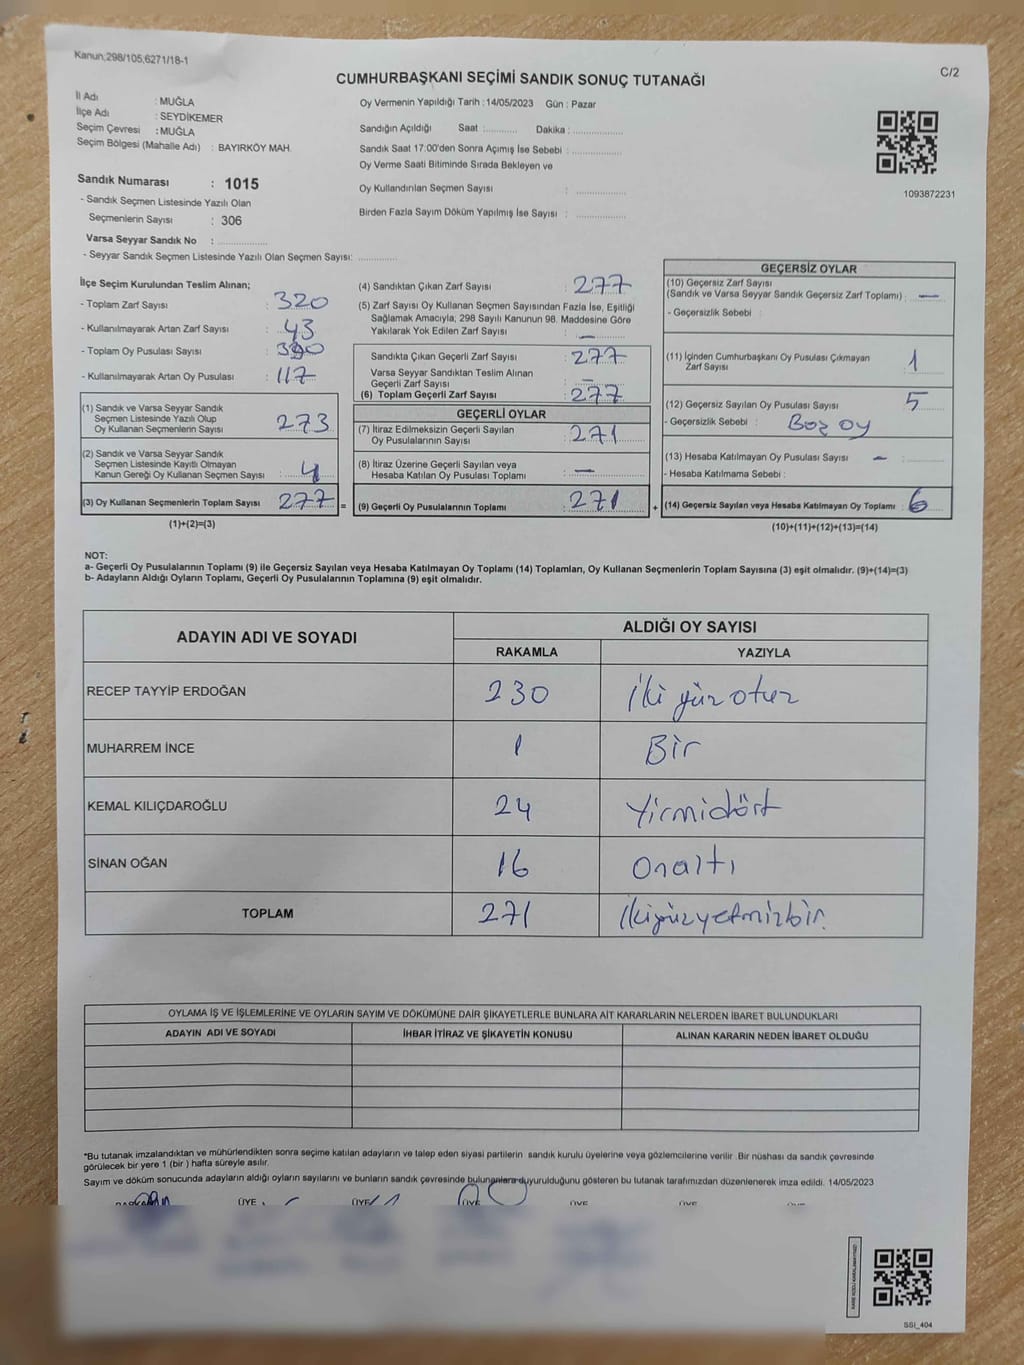 Kanun;298/105,6271/18-1
C/2
CUMHURBAŞKANI SEÇİMİ SANDIK SONUÇ TUTANAĞI
İl Adı : MUĞLA
İlçe Adı : SEYDİKEMER
Seçim Çevresi : MUĞLA
Seçim Bölgesi (Mahalle Adı) : BAYIRKÖY MAH.
Oy Vermenin Yapıldığı Tarih : 14/05/2023 Gün : Pazar
Sandığın Açıldığı Saat :............ Dakika : ................
Sandık Saat 17:00'den Sonra Açımış İse Sebebi : ................
Oy Verme Saati Bitiminde Sırada Bekleyen ve
Oy Kullandırılan Seçmen Sayısı : ................
Birden Fazla Sayım Döküm Yapılmış İse Sayısı : ................
1093872231
Sandık Numarası : 1015
- Sandık Seçmen Listesinde Yazılı Olan
Seçmenlerin Sayısı : 306
Varsa Seyyar Sandık No : ................
- Seyyar Sandık Seçmen Listesinde Yazılı Olan Seçmen Sayısı: ............
İlçe Seçim Kurulundan Teslim Alınan;
- Toplam Zarf Sayısı : 320
- Kullanılmayarak Artan Zarf Sayısı : 43
- Toplam Oy Pusulası Sayısı :
- Kullanılmayarak Artan Oy Pusulası : 117
(1) Sandık ve Varsa Seyyar Sandık
Seçmen Listesinde Yazılı Olup
Oy Kullanan Seçmenlerin Sayısı : 273
(2) Sandık ve Varsa Seyyar Sandık
Seçmen Listesinde Kayıtlı Olmayan
Kanun Gereği Oy Kullanan Seçmen Sayısı : 4
(3) Oy Kullanan Seçmenlerin Toplam Sayısı : 277 =
(1)+(2)=(3)
(4) Sandıktan Çıkan Zarf Sayısı : 277
(5) Zarf Sayısı Oy Kullanan Seçmen Sayısından Fazla İse, Eşitliği
Sağlamak Amacıyla; 298 Sayılı Kanunun 98. Maddesine Göre
Yakılarak Yok Edilen Zarf Sayısı : —
Sandıkta Çıkan Geçerli Zarf Sayısı : 277
Varsa Seyyar Sandıktan Teslim Alınan
Geçerli Zarf Sayısı : —
(6) Toplam Geçerli Zarf Sayısı : 277
GEÇERLİ OYLAR
(7) İtiraz Edilmeksizin Geçerli Sayılan
Oy Pusulalarının Sayısı : 271
(8) İtiraz Üzerine Geçerli Sayılan veya
Hesaba Katılan Oy Pusulası Toplamı : —
(9) Geçerli Oy Pusulalarının Toplamı : 271 +
GEÇERSİZ OYLAR
(10) Geçersiz Zarf Sayısı
(Sandık ve Varsa Seyyar Sandık Geçersiz Zarf Toplamı) : —
- Geçersizlik Sebebi :
(11) İçinden Cumhurbaşkanı Oy Pusulası Çıkmayan
Zarf Sayısı : 1
(12) Geçersiz Sayılan Oy Pusulası Sayısı : 5
- Geçersizlik Sebebi : Boz oy
(13) Hesaba Katılmayan Oy Pusulası Sayısı — :
- Hesaba Katılmama Sebebi :
(14) Geçersiz Sayılan veya Hesaba Katılmayan Oy Toplamı : 6
(10)+(11)+(12)+(13)=(14)
NOT:
a- Geçerli Oy Pusulalarının Toplamı (9) ile Geçersiz Sayılan veya Hesaba Katılmayan Oy Toplamı (14) Toplamları, Oy Kullanan Seçmenlerin Toplam Sayısına (3) eşit olmalıdır. (9)+(14)=(3)
b- Adayların Aldığı Oyların Toplamı, Geçerli Oy Pusulalarının Toplamına (9) eşit olmalıdır.
ADAYIN ADI VE SOYADI
ALDIĞI OY SAYISI
RAKAMLA YAZIYLA
RECEP TAYYİP ERDOĞAN 230 İki yüz otuz
MUHARREM İNCE 1 Bir
KEMAL KILIÇDAROĞLU 24 Yirmidört
SİNAN OĞAN 16 Onaltı
TOPLAM 271 İkiyüzyetmizbir.
OYLAMA İŞ VE İŞLEMLERİNE VE OYLARIN SAYIM VE DÖKÜMÜNE DAİR ŞİKAYETLERLE BUNLARA AİT KARARLARIN NELERDEN İBARET BULUNDUKLARI
ADAYIN ADI VE SOYADI İHBAR İTİRAZ VE ŞİKAYETİN KONUSU ALINAN KARARIN NEDEN İBARET OLDUĞU
*Bu tutanak imzalandıktan ve mühürlendikten sonra seçime katılan adayların ve talep eden siyasi partilerin sandık kurulu üyelerine veya gözlemcilerine verilir. Bir nüshası da sandık çevresinde
görülecek bir yere 1 (bir ) hafta süreyle asılır.
Sayım ve döküm sonucunda adayların aldığı oyların sayılarını ve bunların sandık çevresinde bulunanlara duyurulduğunu gösteren bu tutanak tarafımızdan düzenlenerek imza edildi. 14/05/2023
ÜYE ÜYE ÜYE ÜYE ÜYE
SSI_404